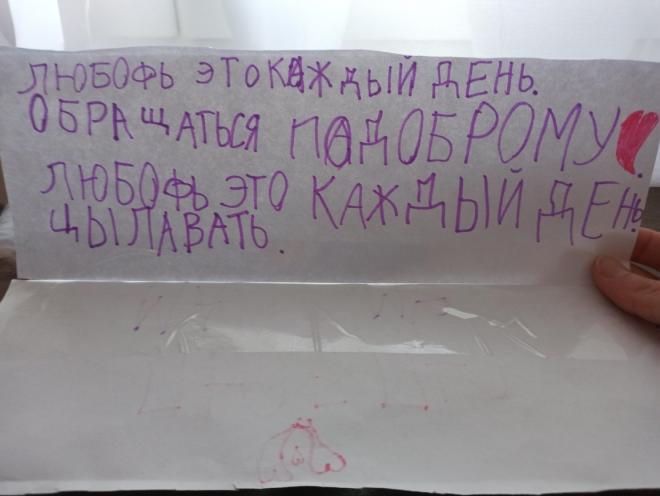 ЛЮБОФЬ ЭТО КАЖДЫЙ ДЕНЬ.
ОБРАЩАТЬСЯ ПАДОБРОМУ
ЛЮБОФЬ ЭТО КАЖДЫЙ ДЕНЬ.
ЦЫЛАВАТЬ.